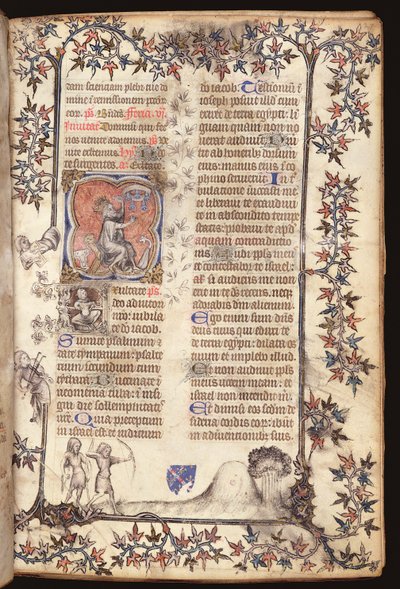 dam scientiam plebi tue do
mine in remissionem pecca
eor. ps. Bndus. feria. vi.
Inuitat. Dominum qui fe
nos uenite adoremus. ps.
nite exultemus. hy.
te surgentes. a. Exultate.
Exultate ps.
deo adiutori
nostro: iubila
te deo iacob.
Sumite psalmum et
date tympanum: psalte
rium iocundum cum
cythara. Buccinate in
neomenia tuba: in insi
gni die sollempnitatis
uestre. Quia preceptum
in israel est: et iudicium
deo iacob. Testimonium in
ioseph posuit illud cum
exiret de terra egypti: li
guam quam non no
uerat audiuit. Diuer
tit ab oneribus dorsum
eius: manus eius in co
phino seruierunt. In t
bulatione inuocasti me
et liberaui te: exaudiui te
in abscondito tempe
statis: probaui te apud
aquam contradictio
nis. Audi ppls meus
et contestabor te: israel
si audieris me non
erit in te ds recens. neq
adorabis deum alienum.
Ego enim sum dns
deus tuus qui eduxi te
de terra egypti: dilata os
tuum et implebo illud.
Et non audiuit ppu
lus meus uocem meam: et
israel non intendit michi.
Et dimisi eos secundum de
sideria cordis eorum: ibunt
in adinuentionibus suis.